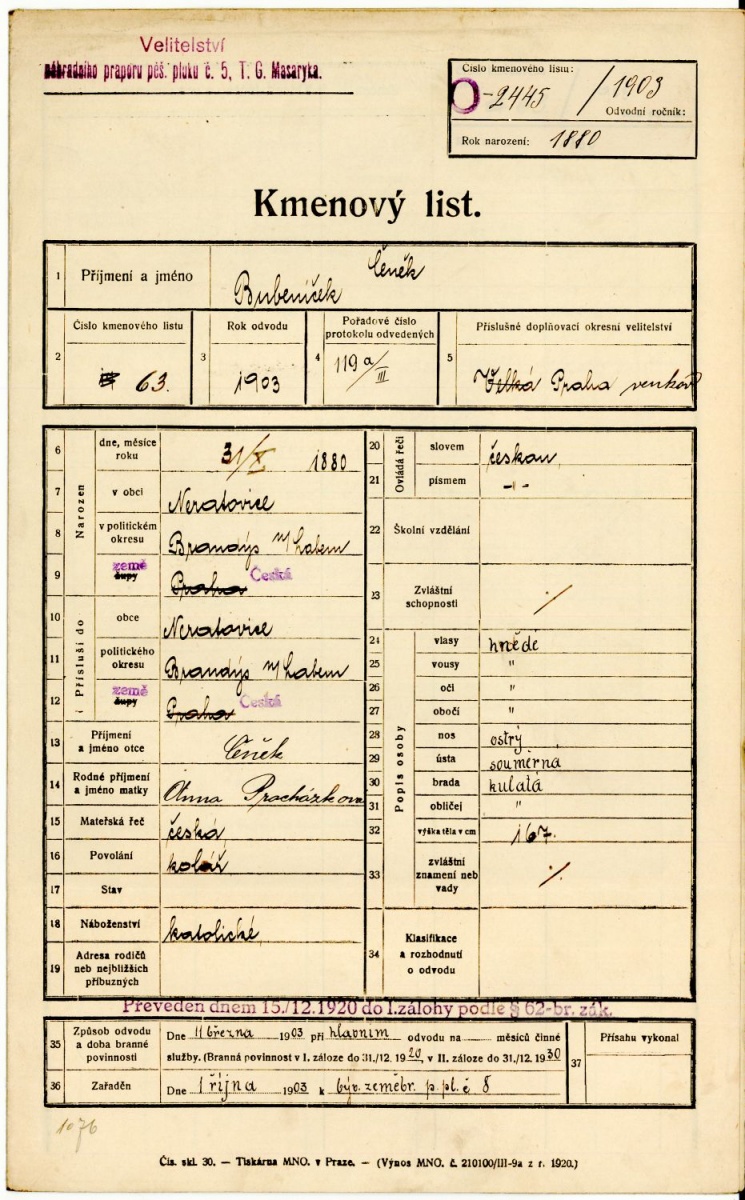 Velitelství
náhradního praporu pěš. pluku č. 5, T. G. Masaryka.
Číslo kmenového listu:
O-2445 / 1903
Odvodní ročník:
Rok narození: 1880
Kmenový list.
1 Příjmení a jméno Bubeníček Čeněk
2 Číslo kmenového listu 63.
3 Rok odvodu 1903
4 Pořadové číslo protokolu odvedených 119a/III
5 Příslušné doplňovací okresní velitelství Velká Praha venkov
Narozen
6 dne, měsíce roku 31/X 1880
7 v obci Neratovice
8 v politickém okresu Brandýs n/Labem
9 země župy Praha Česká
Přísluší do
10 obce Neratovice
11 politického okresu Brandýs n/Labem
12 země župy Praha Česká
13 Příjmení a jméno otce Čeněk
14 Rodné příjmení a jméno matky Anna Procházkova
15 Mateřská řeč česká
16 Povolání kolář
17 Stav
18 Náboženství katolické
19 Adresa rodičů neb nejbližších příbuzných
Ovládá řeči
20 slovem českou
21 písmem -"-
22 Školní vzdělání
23 Zvláštní schopnosti ./.
Popis osoby
24 vlasy hnědé
25 vousy "
26 oči "
27 obočí "
28 nos ostrý
29 ústa souměrná
30 brada kulatá
31 obličej "
32 výška těla v cm 167.
33 zvláštní znamení neb vady ./.
34 Klasifikace a rozhodnutí o odvodu
Převeden dnem 15./12.1920 do I.zálohy podle § 62-br. zák.
35 Způsob odvodu a doba branné povinnosti Dne 11 března 1903 při hlavním odvodu na — měsíců činné
služby. (Branná povinnost v I. záloze do 31./12. 1920, v II. záloze do 31./12. 1930
36 Zařaděn Dne 1 října 1903 k býv. zeměbr. p. pl. č 8
37 Přísahu vykonal
1076
Čís. skl. 30. — Tiskárna MNO. v Praze. — (Výnos MNO. č. 210100/III-9a z r. 1920.)